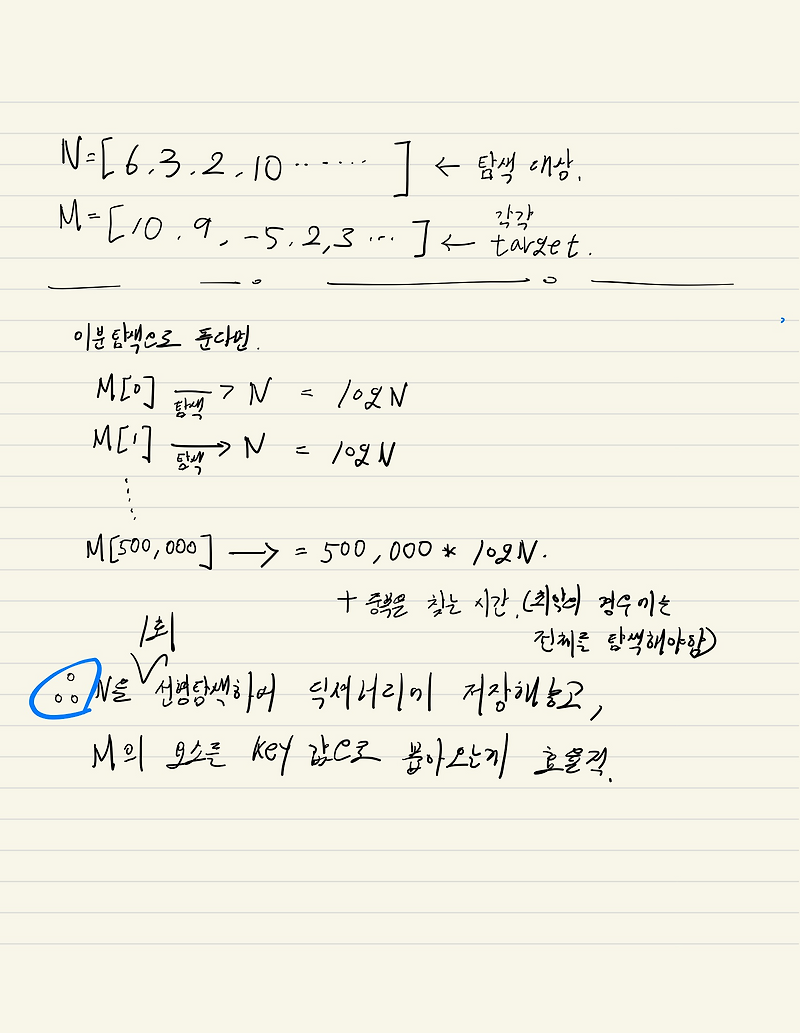 N=[6, 3, 2, 10 ‥‥‥ ] ← 탐색 대상.
M=[10, 9, -5, 2, 3 … ] ← 각각 target.
이분탐색으로 푼다면.
M[0] 탐색→ N = logN
M[1] 탐색→ N = logN
M[500,000] → = 500,000 * logN.
+ 중복을 찾는 시간. (최악의 경우에는
전체를 탐색해야함)
1회
∴ N을 선형탐색하여 딕셔너리에 저장해놓고,
M의 요소를 key 값으로 뽑아오는게 효율적.